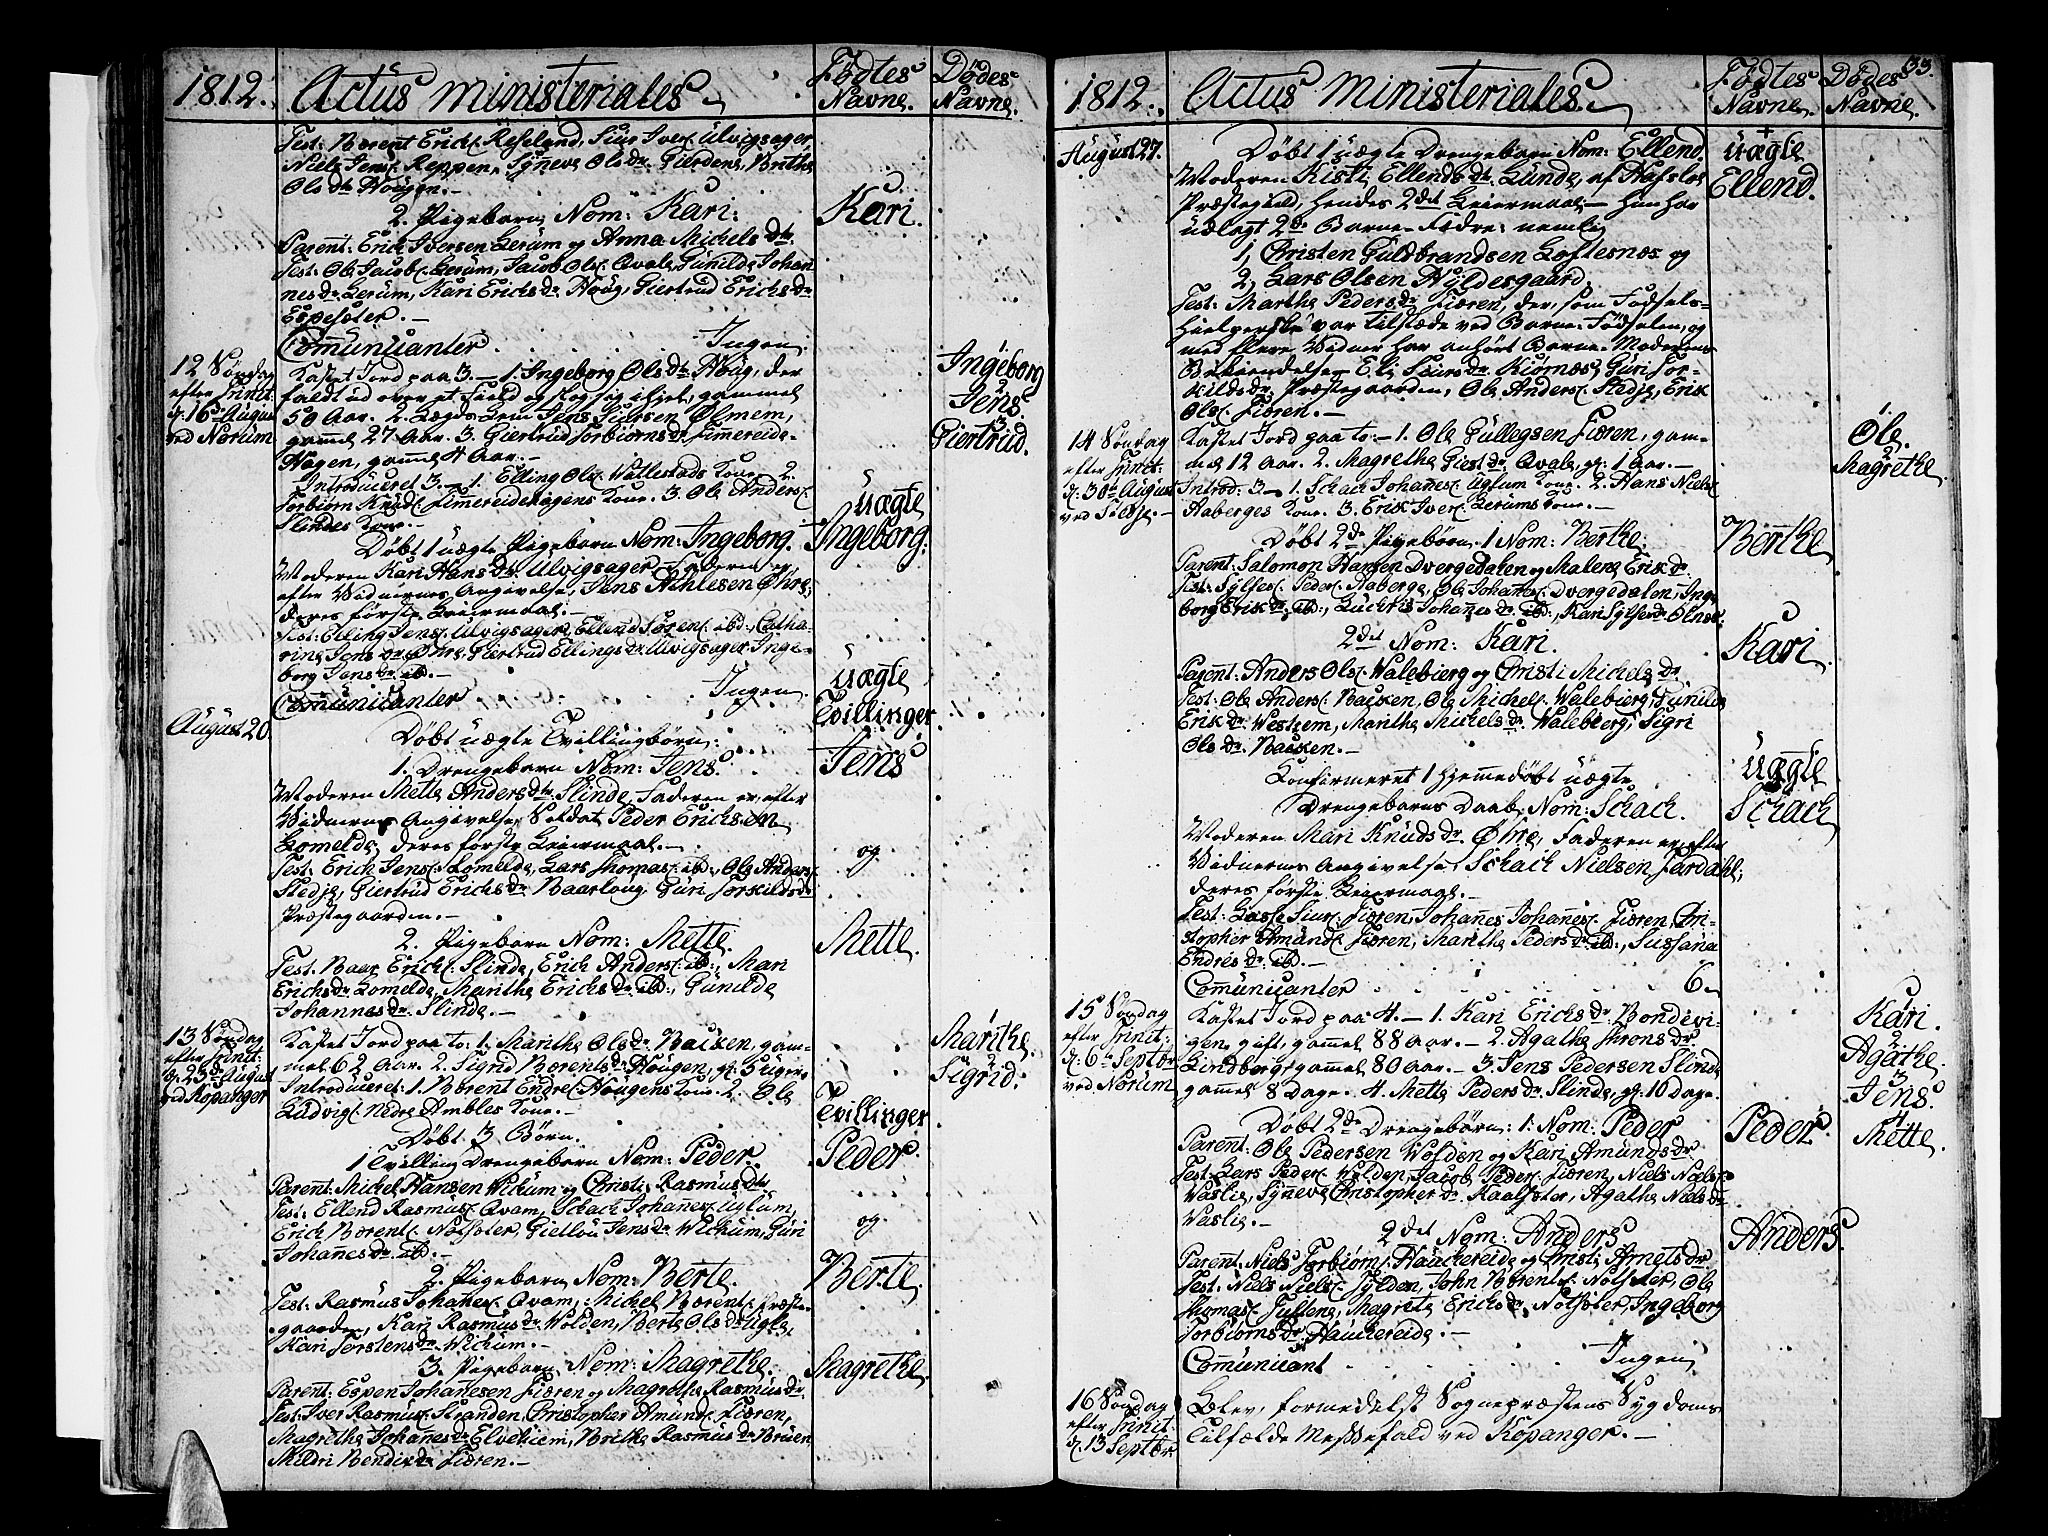 1812. Actus ministeriales Fødtes Navne. Dødes Navne.
Test: Børent Erichs. Reseland, Siur Ivers. Ulvigsager,
Niels Jens. Reppen, Synneve Ols dr. Gierdene, Brithe
Ols dtr Hougen.
2. Pigebarn Nom: Kari: Kari.
Parent: Erich Iversen Lerum og Anna Michels dtr
Test: Ole Jacobs. Lerum, Jacob Ols. Qvale, Gunilde Johan
nes dr Lerum, Kari Erichs dr Houg, Giertrud Erichs dr
Espesæter.
Comunicanter Ingen
12 Søndag
efter Trinit:
d: 16de August
ved Norum
Kastet Jord paa 3. 1. Ingeborg Ols dtr Houg, der
faldt ud over et Field og slog sig ihjel, gammel
50 Aar. 2. Lægds Lem Jens Siursen Ølmem,
gammel 27 Aar. 3. Giertrud Torbiørns dr Timmereide-
Hagen, gammel 4 Aar.
Ingeborg
Jens
3.
Giertrud.
Introduceret 3. 1. Elling Ols. Vallestads Kone 2.
Torbiørn Knuds. Timmereidehagens Kone. 3. Ole Anders.
Slindes Kone.
Døbt 1 uægte Pigebarn Nom: Ingeborg.
uægte
Ingeborg.
Moderen Kari Hans dr Ulvigsager Faderen er
efter Vidnernes Angivelse, Jens Achlesen Øhre,
deres første Leiermaal.
Test: Elling Jens. Ulvigsager, Ellend Sørens. ibd:, Catha-
rine Jens dr Øhre, Giertrud Ellings dr Ulvigsager Inge-
borg Jens dr ib.
Comunicanter Ingen
August 20.
Døbt uægte Tvillingbørn:
1. Drengebarn Nom: Jens.
uægte
Tvillinger
Jens
Moderen Mette Anders dtr Slinde, Faderen er, efter
Vidnernes Angivelse, Soldat Peder Erichsen
Lomelde, deres første Leiermaal.
Test: Erich Jens. Lomelde, Lars Thomas. ibd:, Ole Anders.
Stedje, Giertrud Erichs dr Baarloug Guri Torkilds dr
Præstegaarden.
og
2. Pigebarn Nom: Mette. Mette.
Test. Baar Erichs. Slinde, Erich Anders. ib:, Mari
Erichs dr Lomelde, Marithe Erichs dr ibd:, Gunilde
Johannes dr Slinde.
13 Søndag
efter Trinit:
d: 23de August
ved Kopanger
Kastet Jord paa to: 1. Marithe Ols dr Backen, gam-
mel 62 Aar. 2. Sigrid Børents dr Hougen, g: 3 uger.
1
Marithe
2
Sigrid.
Introduceret: 1. Børent Endres. Hougens Kone. 2. Ole
Ludvigs. Nedre Ambles Kone.
Døbt 3 Børn.
1 Tvilling Drengebarn Nom: Peder.
Tvillinger
Peder.
Parent: Michel Hansen Vichum og Christi Rasmus dtr
Test: Ellend Rasmus. Qvam, Schach Johannes. Uglum,
Erich Børent. Notsæter, Gietlou Jens dr Wichum, Guri
Johannes dr ibd.
og
2. Pigebarn Nom: Berte. Berte.
Test: Rasmus Johannes. Qvam, Michel Børent. Præste-
gaarden, Kari Rasmus dr Volden, Berte Ols dr Ugle,
Kari Torstens dr Wichum.
3. Pigebarn Nom: Magrethe. Magrethe.
Parent: Espen Johannesen Fiæren og Magrethe Rasmus dr
Test: Iver Rasmus. Stranden, Christopher Amund. Fiæren,
Magrethe Johannes dr Elvehiem, Brithe Rasmus dr Bruen
Mildri Bendix dr Fiæren.
33.
1812. Actus Ministeriales. Fødtes Navne. Dødes Navne.
August 27.
Døbt 1 uægte Drengebarn Nom: Ellend.
+
uægte
Ellend.
Moderen Kisti Ellends dtr Lunde, af Hafsloe
Præstegield, hendes 2det Leiermaal. Hun har
udlagt 2de Barne-Fædre: nemlig
1, Christen Guldbrandsen Loftesnæs og
2, Lars Olsen Hyldesgaard,
Test: Marthe Peders dr Fiæren, der, som Fødsels-
hielperske var tilstæde ved Barne-Fødselen, og
med flere Vidner har anhørt Barne-Moderens
Bekiendelse, Eli Siurs dr Kiørnæs, Guri Tor-
kilds dr Præstegaarden, Ole Anders. Stedje, Erik
Ols. Fiæren.
14 Søndag
efter Trinit:
d: 30te August
ved Stedje.
Kastet Jord paa to: 1. Ole Gullegsen Fiæren, gam-
mel 12 Aar. 2. Magrethe Giest dr Qvale, g: 1 Aar.
1
Ole.
2
Magrethe
Introd: 3. 1. Schach Johannes. Uglum Kone. 2. Hans Niels.
Aaberges Kone. 3. Erik Ivers. Lerums Kone.
Døbt 2de Pigebørn. 1 Nom: Berthe, Berthe
Parent: Salomon Hansen Dvergedalen og Malene Erik dr
Test: Sylfes. Peders. Aaberge, Ole Johannes. Dvergedalen, Inge
borg Erik dr ib:, Luchris Johannes dr ibd:, Kari Sylfes dr Olnes.
2det Nom: Kari. Kari
Parent: Anders Ols. Walebierg og Christi Michels dr
Test: Ole Anders. Backen, Ole Michels. Walebierg, Gunilde
Erik dr Westrem, Marithe Michels dr Walebierg, Sigri
Ols dr Backen.
Konfirmeret 1 hjemmedøbt uægte
Drengebarns Daab, Nom: Schach.
uægte
Schach
Moderen Mari Knuds dr Øhre, Faderen er, efter
Vidnernes Angivelse Schach Nielsen Fardahl,
deres første Leiermaal.
Test: Lasse Siur. Fiæren, Johannes Johannes. Fiæren, Chri-
stopher Amund. Fiæren, Marithe Peders dr ibd:, Sussana
Endres dr ibd.
Comunicanter 6
15 Søndag
efter Trinit:
d: 6te Septbr
ved Norum
Kastet Jord paa 4. 1. Kari Erichs dr Bondevi-
gen, gift, gammel 88 Aar. 2. Agathe Throns dr
Lindberg, gammel 80 Aar. 3. Jens Pedersen Slinde
gammel 8 Dage. 4. Mette Peders dr Slinde, g: 10 Dage.
1
Kari.
2
Agathe
3
Jens.
4
Mette
Døbt 2de Drengebørn: 1. Nom: Peder Peder.
Parent: Ole Pedersen Wolden og Kari Amunds dr
Test: Lars Peder. Wolden, Jacob Peder. Fiæren, Niels Niels.
Vaslie, Synneve Christopher dr Kaalsæter, Agathe Niels dr
Vaslie.
2det Nom: Anders Anders.
Parent: Niels Torbiørns. Hauchereide og Christi Arnets dr
Test: Niels Niels. Sylden, John Børent. Nolsæter, Ole
Thomas. Tuftene, Magrete Erichs dr Notsæter, Ingeborg
Torbiørns dr Hauchereide.
Comunicant Ingen
16 Søndag
efter Trinit:
d: 13 Septbr.
Blev, formedelst Sognepræstens Sygdoms-
Tilfælde Messefald ved Kopanger.